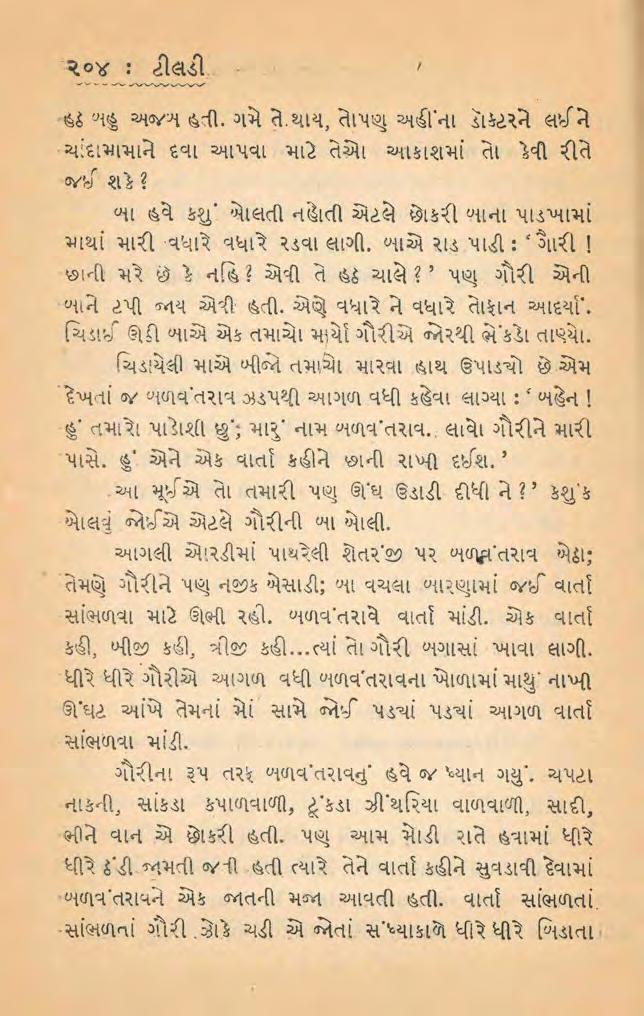 ૨૦૪ : ટીલડી
હઠ બહુ અજબ હતી. ગમે તે થાય, તોપણ અહીંના ડૉક્ટરને લઈને
ચાંદામામાને દવા આપવા માટે તેઓ આકાશમાં તો કેવી રીતે
જઈ શકે?
બા હવે કશું બોલતી નહોતી એટલે છોકરી બાના પાડખામાં
માથાં મારી વધારે વધારે રડવા લાગી. બાએ રાડ પાડી : ‘ ગૌરી !
છાની મરે છે કે નહિ? એવી તે હઠ ચાલે? ’ પણ ગૌરી એની
બાને ટપી જાય એવી હતી. એણે વધારે ને વધારે તોફાન આદર્યાં.
ચિડાઈ ઊઠી બાએ એક તમાચો માર્યો ગૌરીએ જોરથી ભેંકડો તાણ્યો.
ચિડાયેલી માએ બીજો તમાચો મારવા હાથ ઉપાડ્યો છે એમ
દેખતાં જ બળવંતરાવ ઝડપથી આગળ વધી કહેવા લાગ્યા : ‘ બહેન !
હું તમારો પાડોશી છું; મારું નામ બળવંતરાવ. લાવો ગૌરીને મારી
પાસે. હું એને એક વાર્તા કહીને છાની રાખી દઈશ. ’
આ મૂઈએ તો તમારી પણ ઊંઘ ઉડાડી દીધી ને? ’ કશુંક
બોલવું જોઈએ એટલે ગૌરીની બા બોલી.
આગલી ઓરડીમાં પાથરેલી શેતરંજી પર બળવંતરાવ બેઠા;
તેમણે ગૌરીને પણ નજીક બેસાડી; બા વચલા બારણામાં જઈ વાર્તા
સાંભળવા માટે ઊભી રહી. બળવંતરાવે વાર્તા માંડી. એક વાર્તા
કહી, બીજી કહી, ત્રીજી કહી...ત્યાં તો ગૌરી બગાસાં ખાવા લાગી.
ધીરે ધીરે ગૌરીએ આગળ વધી બળવંતરાવના ખોળામાં માથું નાખી
ઊંઘટ આંખે તેમનાં મોં સામે જોઈ પડ્યાં પડ્યાં આગળ વાર્તા
સાંભળવા માંડી.
ગૌરીના રૂપ તરફ બળવંતરાવનું હવે જ ધ્યાન ગયું. ચપટા
નાકની, સાંકડા કપાળવાળી, ટૂંકડા ઝીંથરિયા વાળવાળી, સાદી,
ભીને વાન એ છોકરી હતી. પણ આમ મોડી રાતે હવામાં ધીરે
ધીરે ઠંડી જામતી જતી હતી ત્યારે તેને વાર્તા કહીને સુવડાવી દેવામાં
બળવંતરાવને એક જાતની મજા આવતી હતી. વાર્તા સાંભળતાં
સાંભળતાં ગૌરી ઝોકે ચડી એ જોતાં સંધ્યાકાળે ધીરે ધીરે બિડાતા